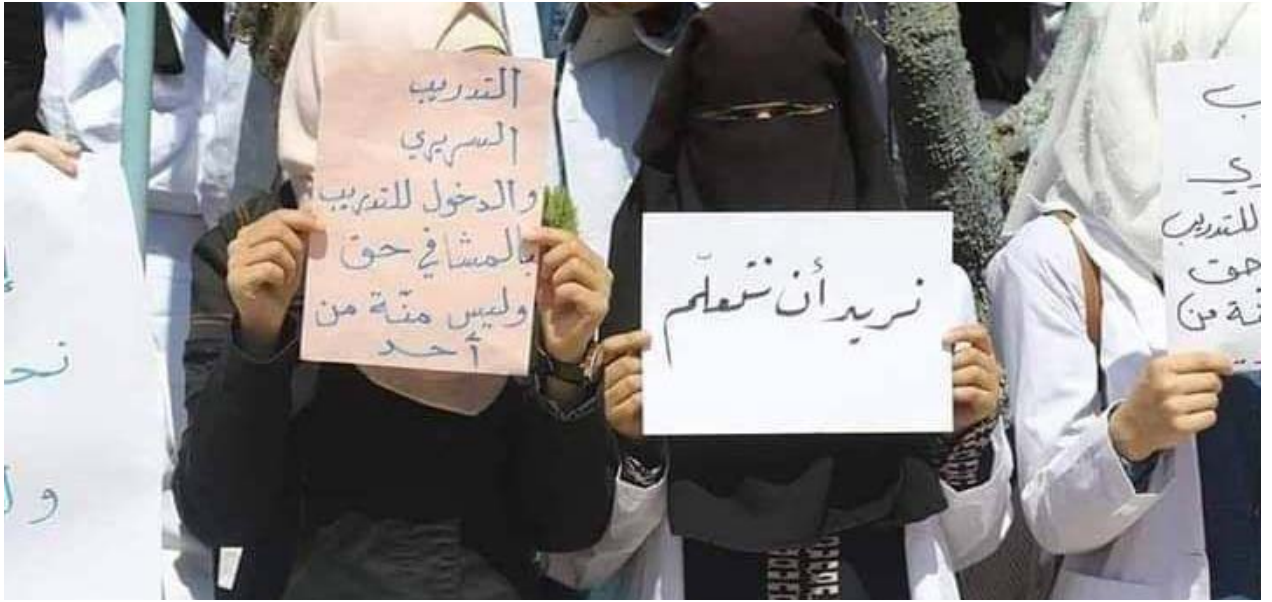 التدريب
السريري
والدخول للتدريب
بالمشافي حق
وليس منّة من
أحد
نريد أن نتعلّم
للتدريب
حق
من